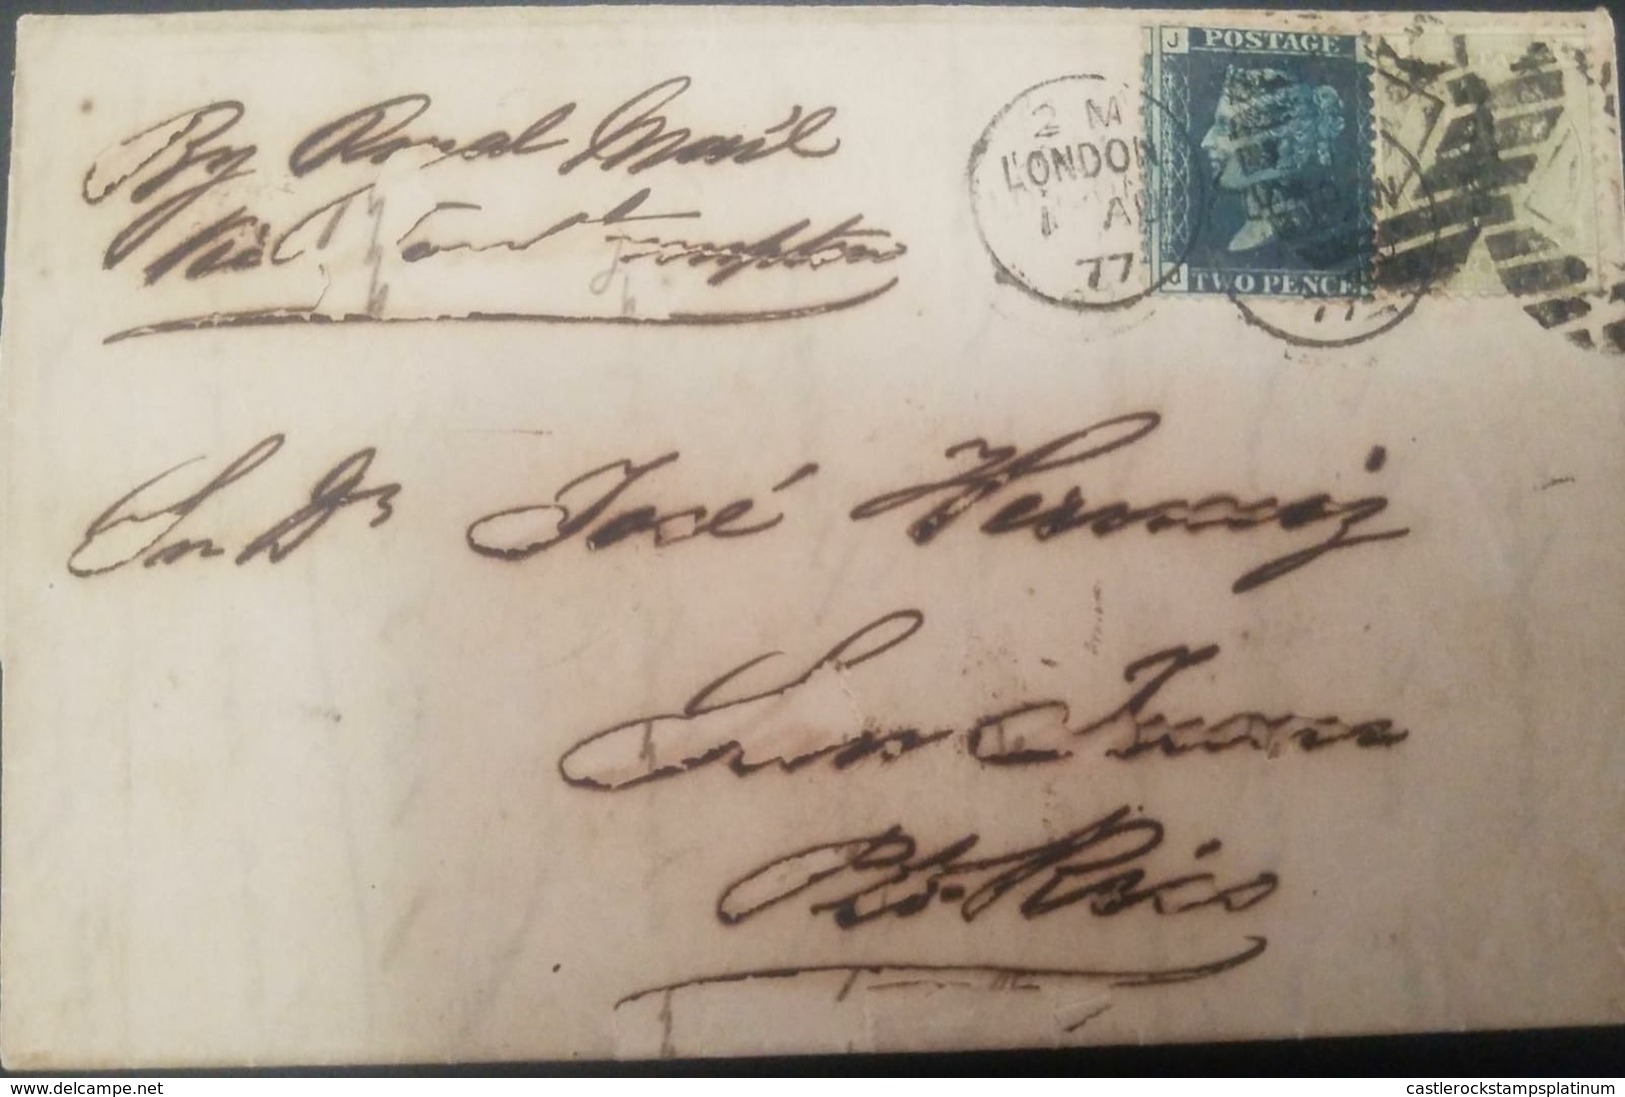 By Royal Mail
Via Southampton
2 M
LONDON
1 AU
77
J POSTAGE
J TWO PENCE
77
Sr Dn José
San Juan
Pto Rico
www.delcampe.net
castlerockstampsplatinum